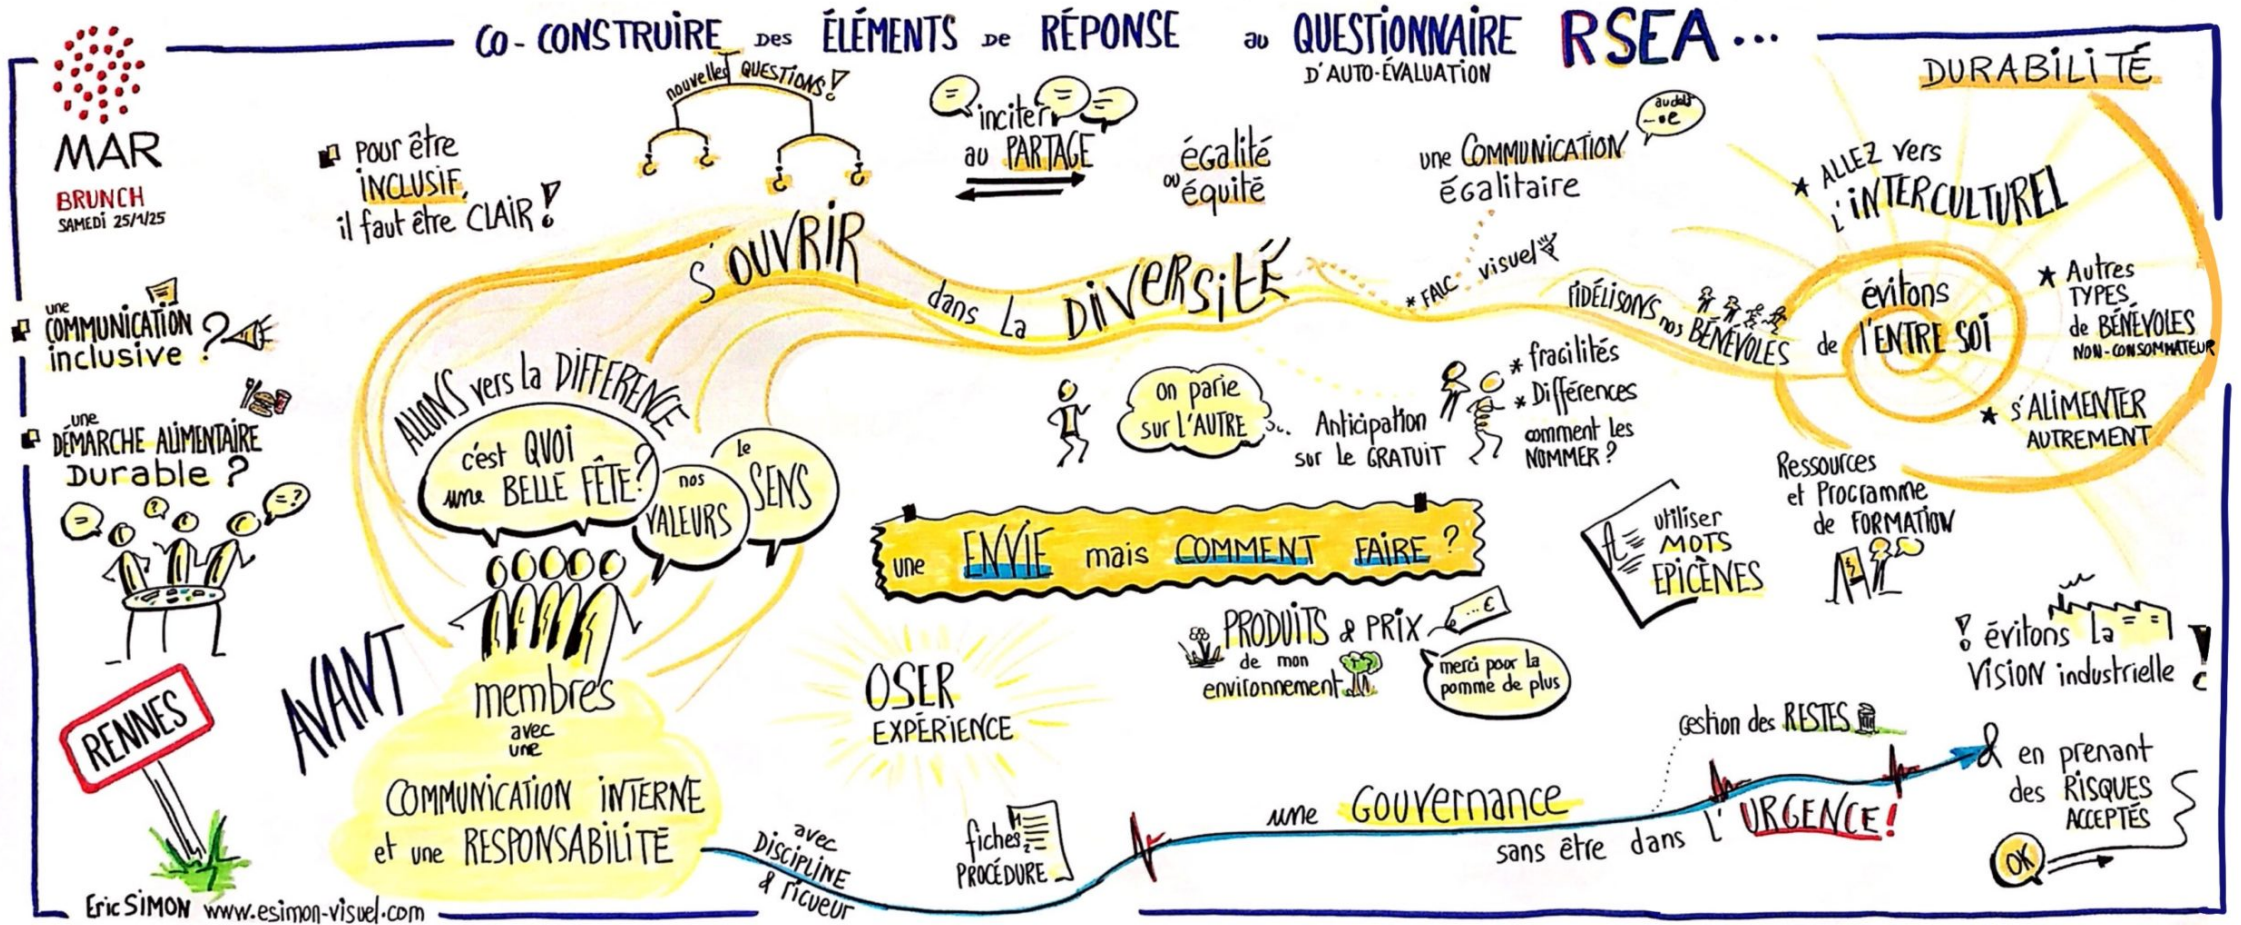 CO-CONSTRUIRE DES ÉLÉMENTS DE RÉPONSE AU QUESTIONNAIRE RSEA...
D'AUTO-ÉVALUATION
MAR
BRUNCH
SAMEDI 25/1/25
POUR être
INCLUSIF,
il faut être CLAIR !
nouvelles QUESTIONS !
inciter
au PARTAGE
égalité
ou
équité
une COMMUNICATION
égalitaire
au delà
DURABILITÉ
* ALLEZ vers
L'INTERCULTUREL
une
COMMUNICATION
inclusive ?
une
DÉMARCHE ALIMENTAIRE
Durable ?
S'OUVRIR
dans la DIVERSITÉ
* FALC visuel
FIDÉLISONS nos BÉNÉVOLES
évitons
de l'ENTRE SOI
* Autres
TYPES
de BÉNÉVOLES
NON-CONSOMMATEUR
* S'ALIMENTER
AUTREMENT
ALLONS vers la DIFFERENCE
c'est QUOI
une BELLE FÊTE ?
nos
VALEURS
le
SENS
on parie
sur L'AUTRE
Anticipation
sur le GRATUIT
* fragilités
* Différences
comment les
NOMMER ?
une ENVIE mais COMMENT FAIRE ?
utiliser
MOTS
EPICÈNES
Ressources
et Programme
de FORMATION
PRODUITS & PRIX
de mon
environnement
...€
merci pour la
pomme de plus
! évitons la
VISION industrielle !
RENNES
AVANT
membres
avec
une
COMMUNICATION INTERNE
et une RESPONSABILITÉ
OSER
EXPÉRIENCE
avec
DISCIPLINE
& rigueur
fiches
PROCÉDURE
une GOUVERNANCE
sans être dans l'URGENCE !
gestion des RESTES
& en prenant
des RISQUES
ACCEPTÉS
OK
Eric SIMON www.esimon-visuel.com